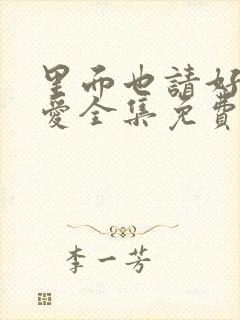 里而也請好
愛全集免費
李一芳